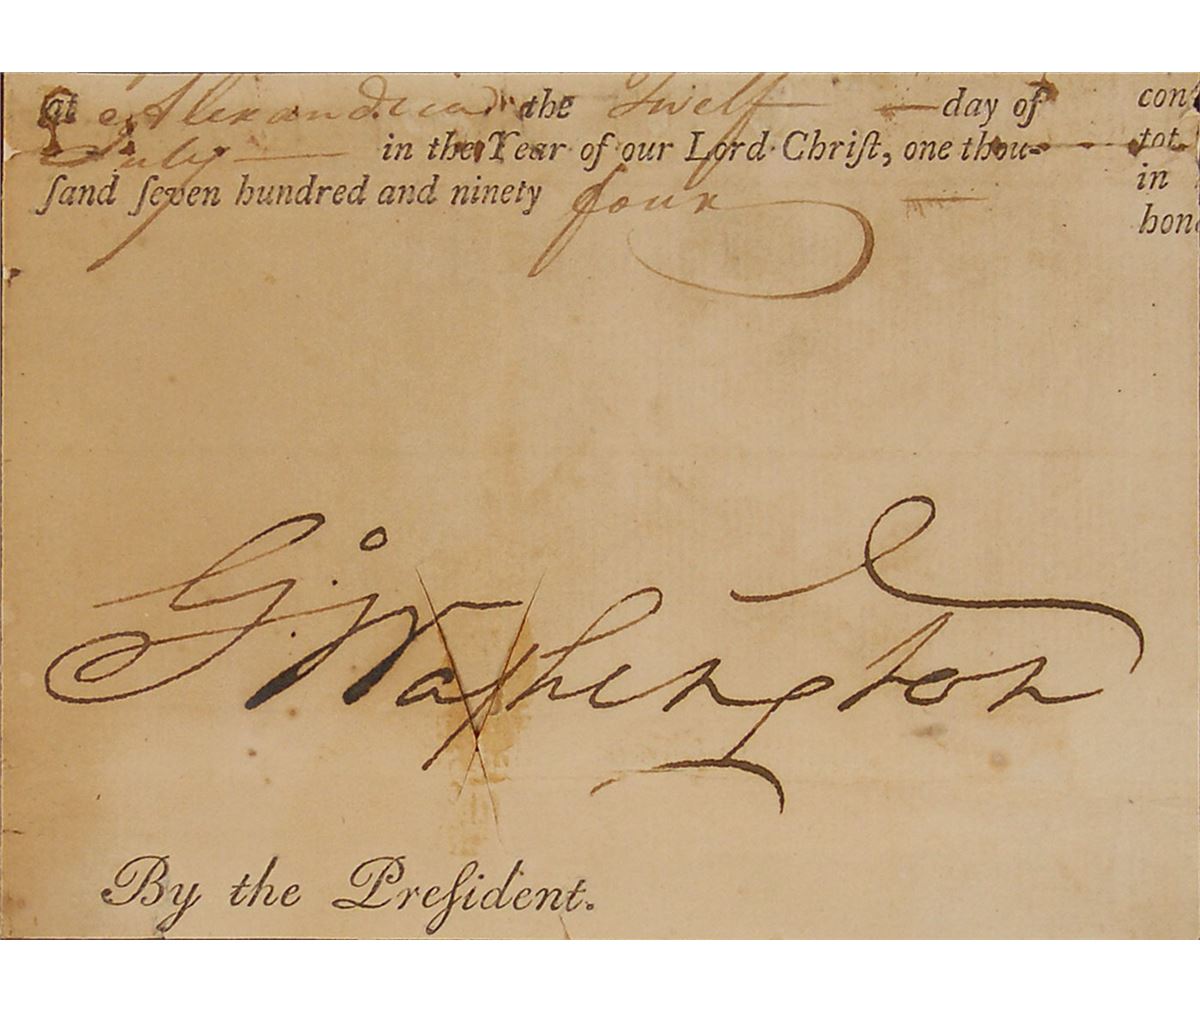 at Alexandria the Twelf day of
July in the Year of our Lord Chriſt, one thou-
ſand ſeven hundred and ninety four
G:Washington
By the Preſident.
con
tot
in
hon